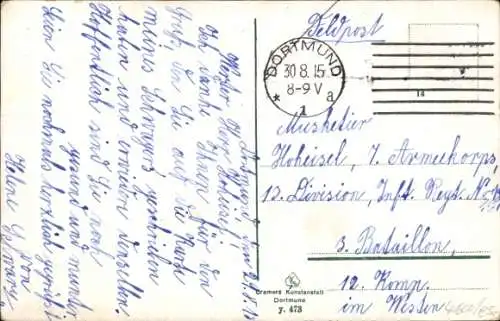 Dortmund, den 29.8.15
Werter Herr Hoheisel!
Ich danke Ihnen für den
Gruß, den Sie auf die Karte
meines Schwagers geschrieben
haben und erwidere denselben.
Hoffentlich sind Sie noch
gesund und munter.
Seien Sie nochmals herzlich gegrüßt
von
Helene
Feldpost
DORTMUND
30.8.15
8-9 V
* 1 a
14
Musketier
Hoheisel, 7. Armeekorps,
13. Division, Inft. Regt. No.
3. Bataillon,
12. Komp.
im Westen
Cramers Kunstanstalt
Dortmund
y. 473